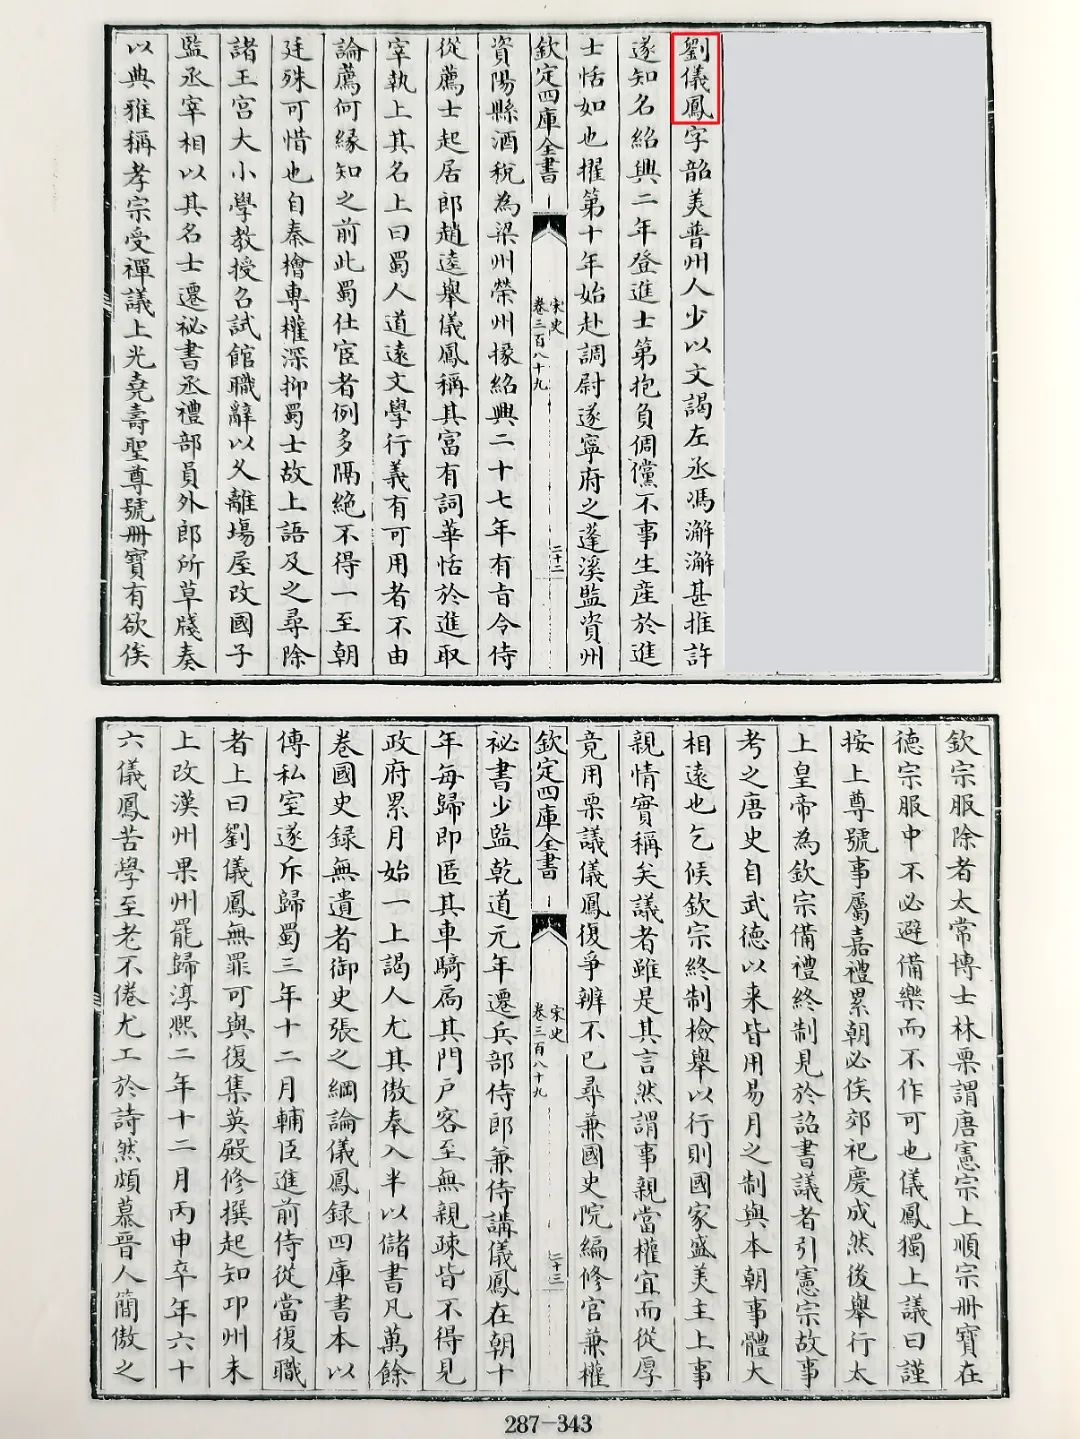 劉儀鳳字韶美普州人少以文謁左丞馮澥澥甚推許
遂知名紹興二年登進士第抱負倜儻不事生産於進
士恬如也擢第十年始赴調尉遂寧府之蓬溪監資州
欽定四庫全書
宋史
卷三百八十九
二十二
資陽縣酒稅為梁州榮州掾紹興二十七年有旨令侍
從薦士起居郎趙逵舉儀鳳稱其富有詞華恬於進取
宰執上其名上曰蜀人道遠文學行義有可用者不由
論薦何緣知之前此蜀仕宦者例多隔絶不得一至朝
廷殊可惜也自秦檜專權深抑蜀士故上語及之尋除
諸王宫大小學教授召試館職辭以久離場屋改國子
監丞宰相以其名士遷祕書丞禮部員外郎所草牋奏
以典雅稱孝宗受禪議上光堯壽聖尊號冊寶有欲俟
欽宗服除者太常博士林栗謂唐憲宗上順宗冊寶在
德宗服中不必避備樂而不作可也儀鳳獨上議曰謹
按上尊號事屬嘉禮累朝必俟郊祀慶成然後舉行太
上皇帝為欽宗備禮終制見於詔書議者引憲宗故事
考之唐史自武德以来皆用易月之制與本朝事體大
相遠也乞候欽宗終制檢舉以行則國家盛美主上事
親情實稱矣議者雖是其言然謂事親當權宜而從厚
竟用栗議儀鳳復爭辨不已尋兼國史院編修官兼權
欽定四庫全書
宋史
卷三百八十九
二十三
祕書少監乾道元年遷兵部侍郎兼侍講儀鳳在朝十
年每歸即匿其車騎扃其門户客至無親疎皆不得見
政府累月始一上謁人尤其傲奉入半以儲書凡萬餘
卷國史録無遺者御史張之綱論儀鳳録四庫書本以
傳私室遂斥歸蜀三年十二月輔臣進前侍從當復職
者上曰劉儀鳳無罪可與復集英殿修撰起知卭州未
上改漢州果州罷歸淳熙二年十二月丙申卒年六十
六儀鳳苦學至老不倦尤工於詩然頗慕晉人簡傲之
287-343